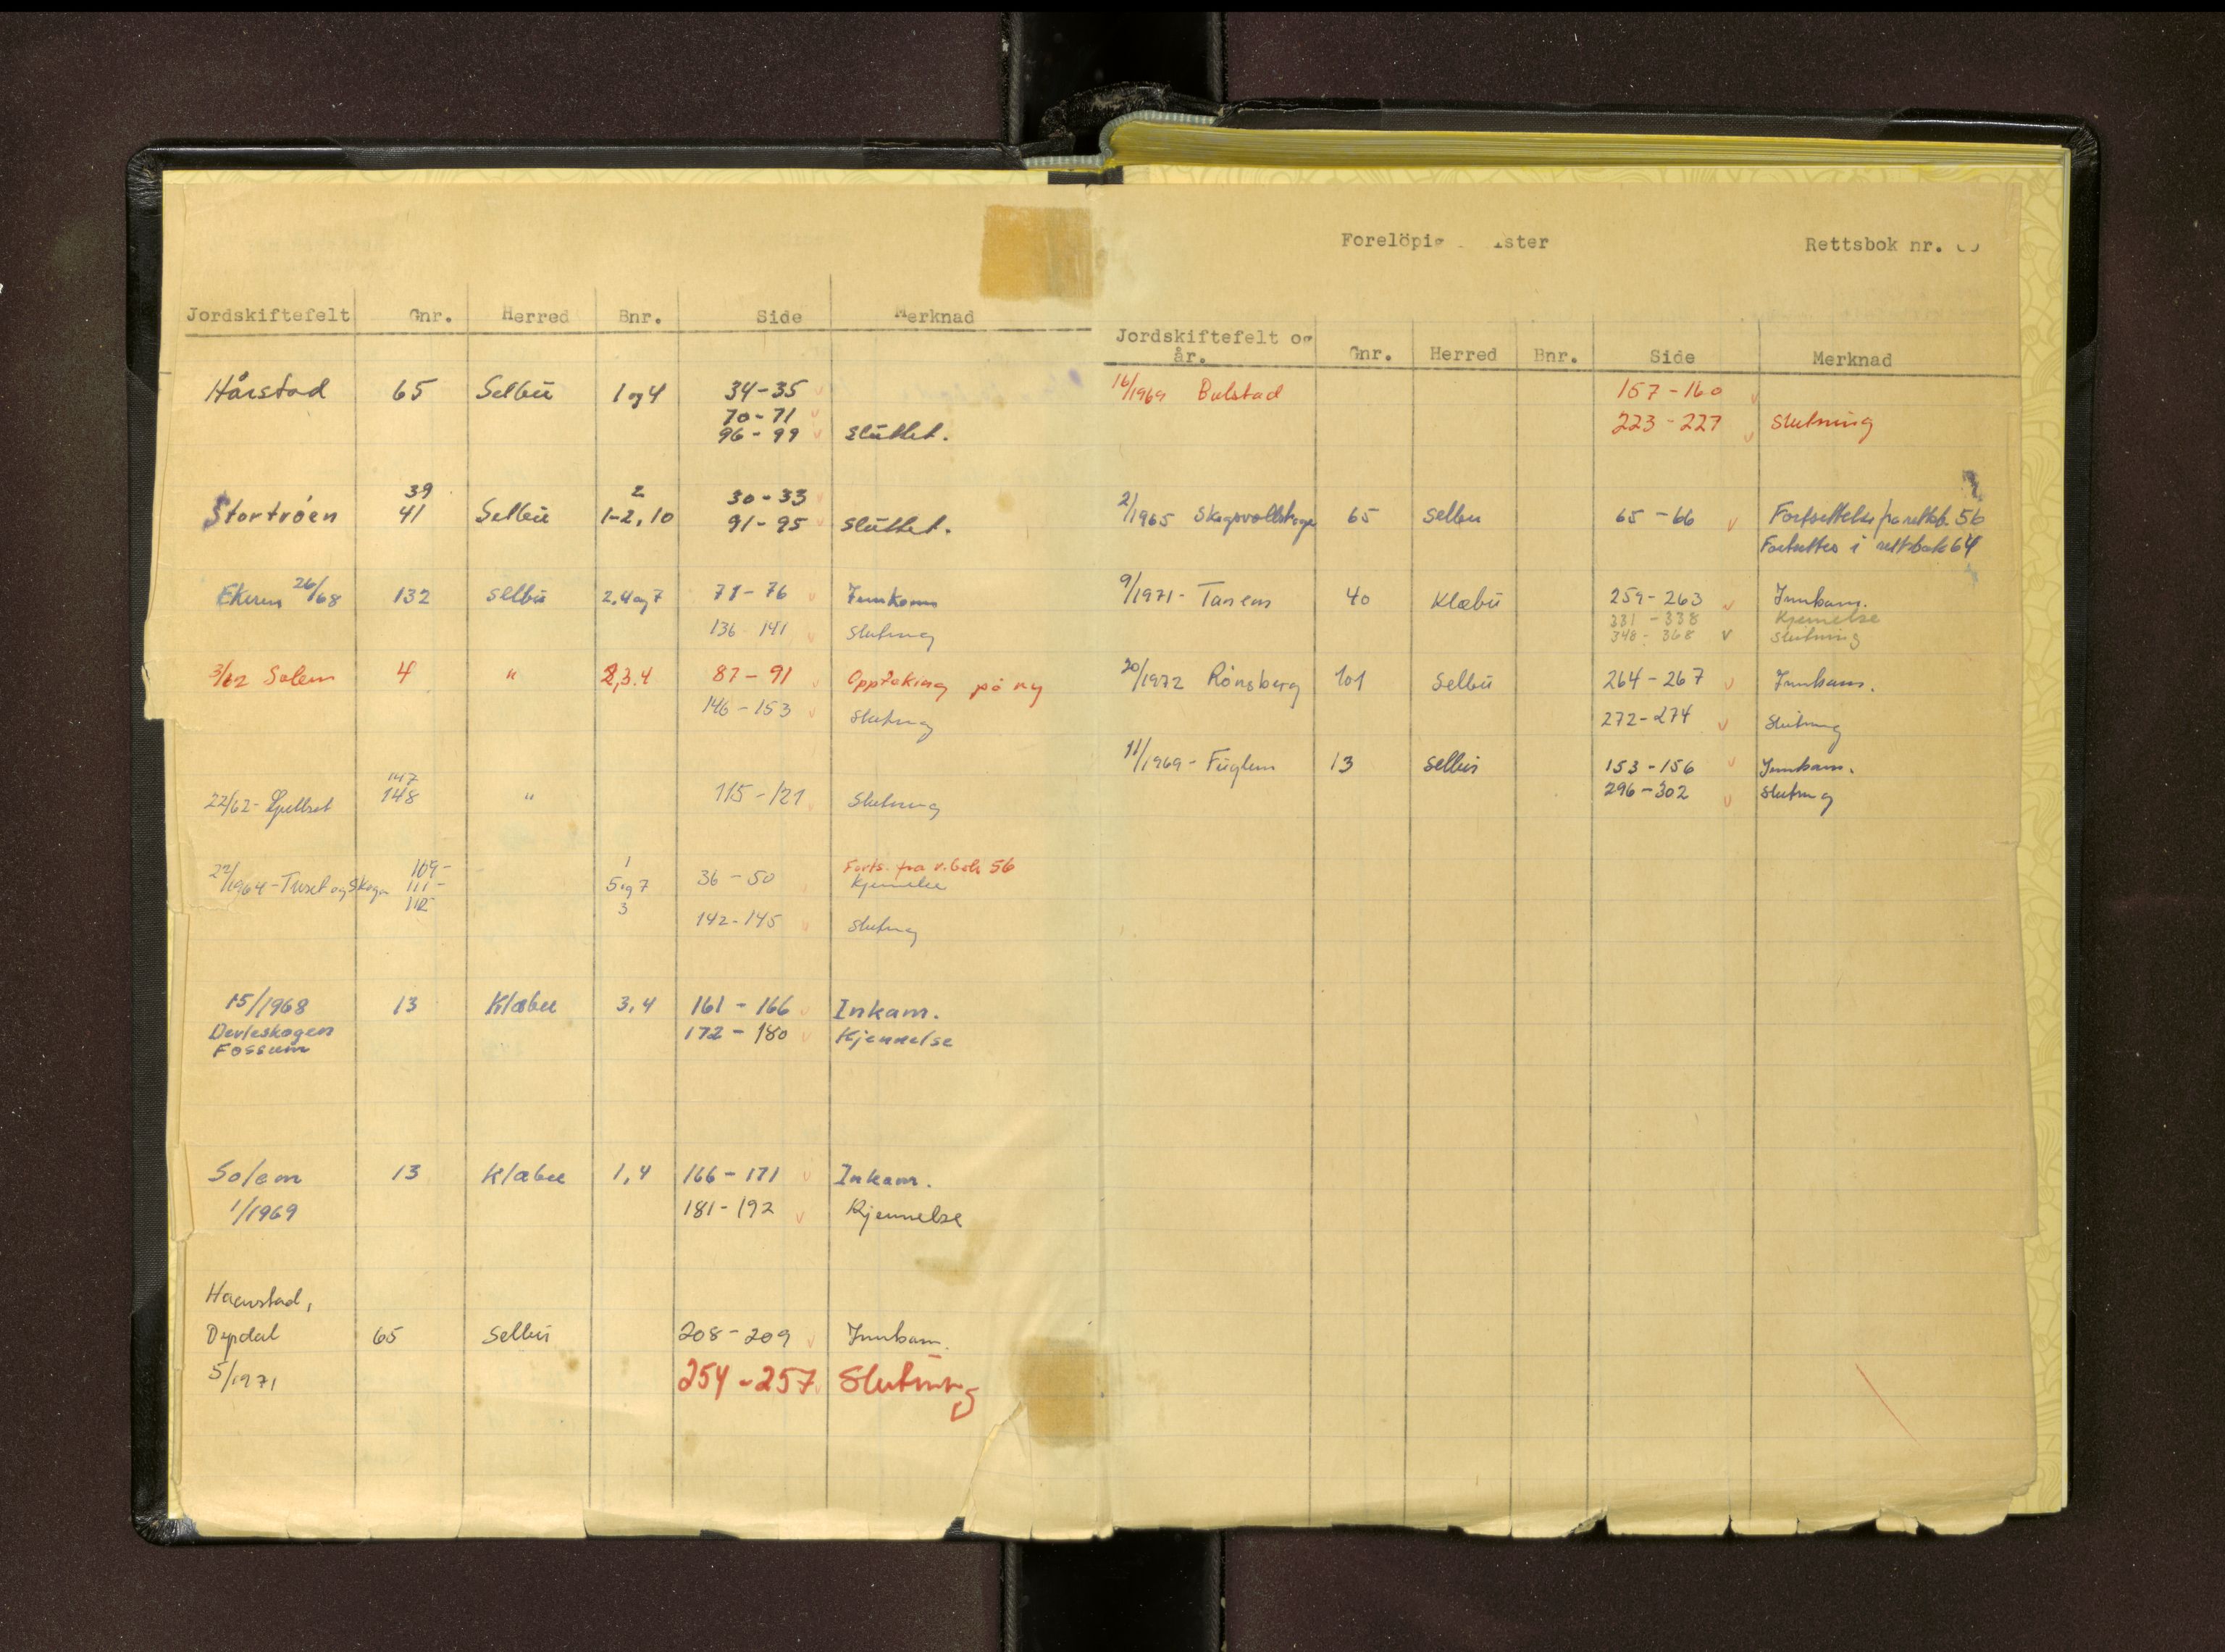 Jordskiftefelt Gnr. Herred Bnr. Side Merknad
Hårstad 65 Selbu 1 og 4 34-35
70-71
96-99 Sluttet.
39 2 30-33
Stortrøen 41 Selbu 1-2, 10 91-95 Sluttet.
Ekren 26/68 132 Selbu 2,4 og 7 71-76 Innkom
136 141 Slutning
3/62 Solem 4 " 2,3.4 87-91 Opptaking på ny
146-153 Slutning
147
22/62- 148 " 115-121 Slutning
109- 1 Forts. fra r.bok 56
22/1964-Tuset og Skogn 111- 5 og 7 36-50 Kjennelse
112 3
142-145 Slutning
15/1968 13 Klæbu 3,4 161-166 Inkam.
Devleskogen 172-180 Kjennelse
Fossum
Solem 13 Klæbu 1,4 166-171 Inkam.
1/1969 181-192 Kjennelse
Haarstad,
Dypdal 65 Selbu 208-209 Innkam.
5/1971 254-257 Slutning
Forelöpig ister Rettsbok nr.
Jordskiftefelt og
år. Gnr. Herred Bnr. Side Merknad
16/1969 Bulstad 157-160
223-227 Slutning
2/1965 65 Selbu 65-66 Fortsettelse fra rettsb. 56
Fortsettes i rettsbok 64
9/1971- Tanem 40 Klæbu 259-263 Innkam.
331-338 Kjennelse
348-368 Slutning
20/1972 Rønsberg 101 Selbu 264-267 Innkam.
272-274 Slutning
11/1969- Fuglem 13 Selbu 153-156 Innkam.
296-302 Slutning